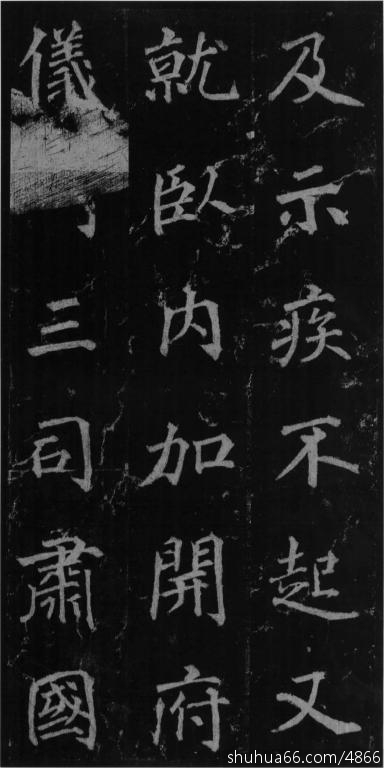 及示疾不起又
就臥内加開府
儀三司肅國
shuhua66.com/4866